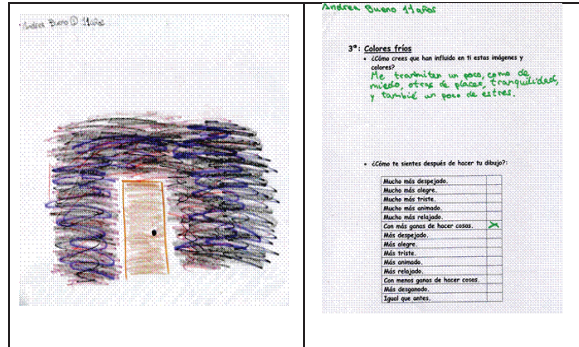 Andrea Bueno ① 11 años
Andrea Bueno 11 años
3º: Colores fríos
• ¿Cómo crees que han influido en ti estas imágenes y
colores?
Me trasmiten un poco, como de
miedo, otras de placer, tranquilidad,
y tambié un poco de estres.
• ¿Cómo te sientes después de hacer tu dibujo?:
Mucho más despejado.
Mucho más alegre.
Mucho más triste.
Mucho más animado.
Mucho más relajado.
Con más ganas de hacer cosas. X
Más despejado.
Más alegre.
Más triste.
Más animado.
Más relajado.
Con menos ganas de hacer cosas.
Más desganado.
Igual que antes.